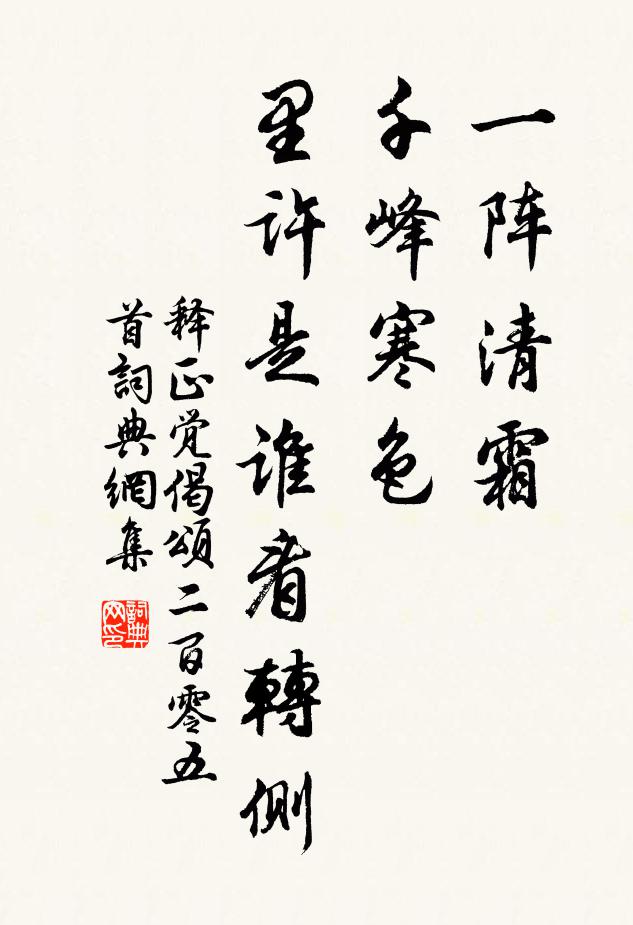 一阵清霜
千峰寒色
里许是谁看轉侧
释正觉偈頌二百零五
首詞典網集
詞典网印